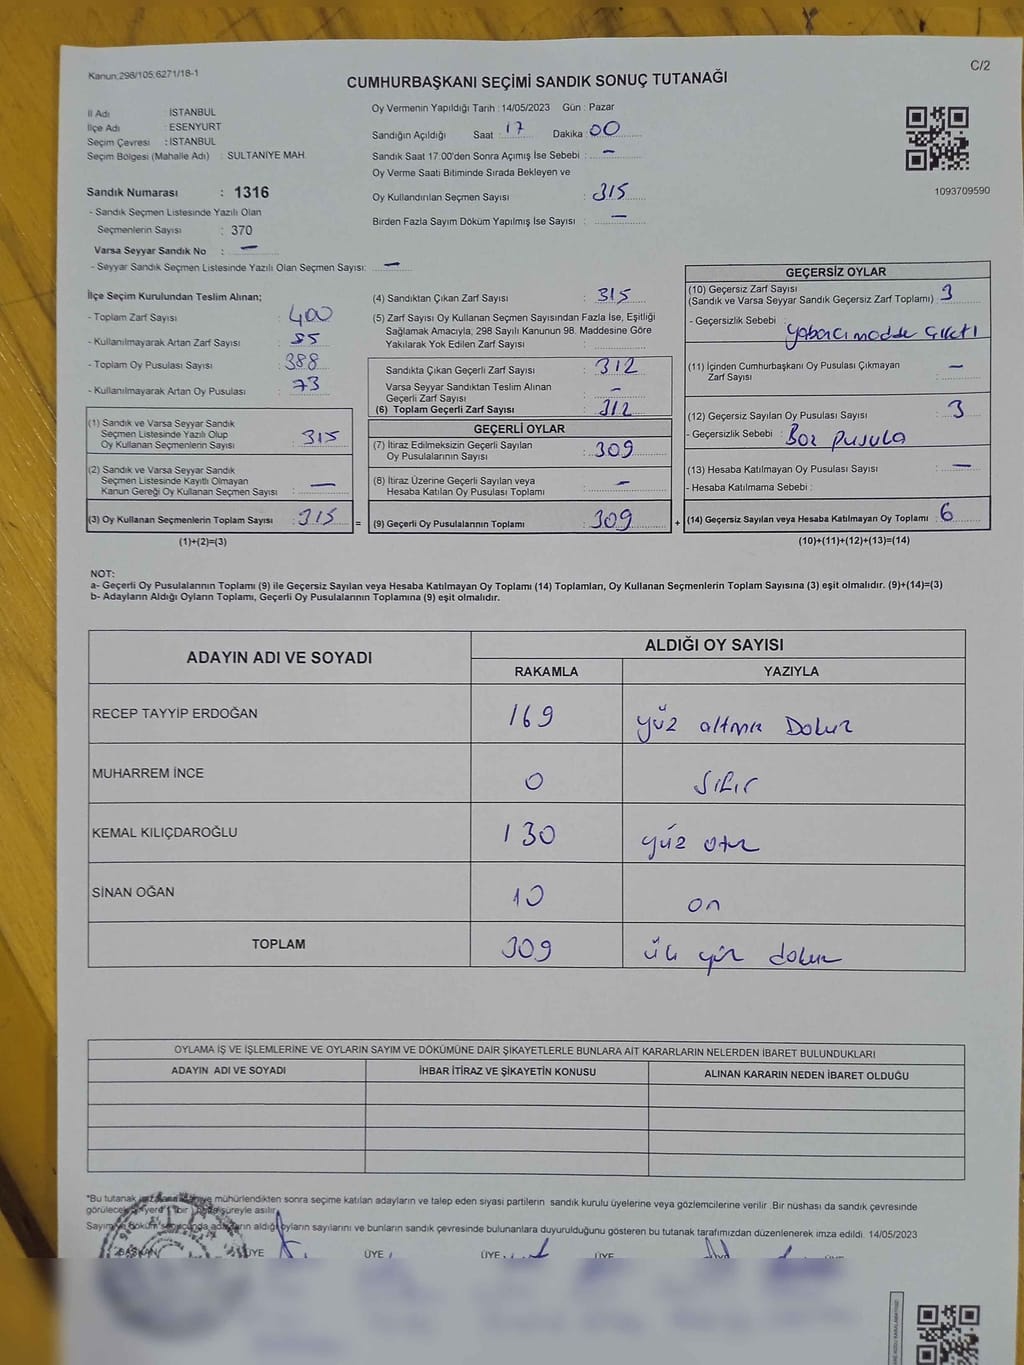 Kanun:298/105;6271/18-1
C/2
CUMHURBAŞKANI SEÇİMİ SANDIK SONUÇ TUTANAĞI
İl Adı : İSTANBUL
İlçe Adı : ESENYURT
Seçim Çevresi : İSTANBUL
Seçim Bölgesi (Mahalle Adı) : SULTANİYE MAH.
Sandık Numarası : 1316
- Sandık Seçmen Listesinde Yazılı Olan
Seçmenlerin Sayısı : 370
Varsa Seyyar Sandık No : —
- Seyyar Sandık Seçmen Listesinde Yazılı Olan Seçmen Sayısı: —
Oy Vermenin Yapıldığı Tarih : 14/05/2023 Gün : Pazar
Sandığın Açıldığı Saat 17 Dakika 00
Sandık Saat 17.00'den Sonra Açımış İse Sebebi : —
Oy Verme Saati Bitiminde Sırada Bekleyen ve
Oy Kullandırılan Seçmen Sayısı : 315
Birden Fazla Sayım Döküm Yapılmış İse Sayısı : —
1093709590
İlçe Seçim Kurulundan Teslim Alınan;
- Toplam Zarf Sayısı : 400
- Kullanılmayarak Artan Zarf Sayısı : 85
- Toplam Oy Pusulası Sayısı : 388
- Kullanılmayarak Artan Oy Pusulası : 73
(1) Sandık ve Varsa Seyyar Sandık
Seçmen Listesinde Yazılı Olup
Oy Kullanan Seçmenlerin Sayısı : 315
(2) Sandık ve Varsa Seyyar Sandık
Seçmen Listesinde Kayıtlı Olmayan
Kanun Gereği Oy Kullanan Seçmen Sayısı : —
(3) Oy Kullanan Seçmenlerin Toplam Sayısı : 315 =
(1)+(2)=(3)
(4) Sandıktan Çıkan Zarf Sayısı : 315
(5) Zarf Sayısı Oy Kullanan Seçmen Sayısından Fazla İse, Eşitliği
Sağlamak Amacıyla; 298 Sayılı Kanunun 98. Maddesine Göre
Yakılarak Yok Edilen Zarf Sayısı :
Sandıkta Çıkan Geçerli Zarf Sayısı : 312
Varsa Seyyar Sandıktan Teslim Alınan
Geçerli Zarf Sayısı : —
(6) Toplam Geçerli Zarf Sayısı : 312
GEÇERLİ OYLAR
(7) İtiraz Edilmeksizin Geçerli Sayılan
Oy Pusulalarının Sayısı : 309
(8) İtiraz Üzerine Geçerli Sayılan veya
Hesaba Katılan Oy Pusulası Toplamı : —
(9) Geçerli Oy Pusulalarının Toplamı : 309 +
GEÇERSİZ OYLAR
(10) Geçersiz Zarf Sayısı
(Sandık ve Varsa Seyyar Sandık Geçersiz Zarf Toplamı) : 3
- Geçersizlik Sebebi : yabancı madde
(11) İçinden Cumhurbaşkanı Oy Pusulası Çıkmayan
Zarf Sayısı : —
(12) Geçersiz Sayılan Oy Pusulası Sayısı : 3
- Geçersizlik Sebebi : Boş pusula
(13) Hesaba Katılmayan Oy Pusulası Sayısı : —
- Hesaba Katılmama Sebebi :
(14) Geçersiz Sayılan veya Hesaba Katılmayan Oy Toplamı : 6
(10)+(11)+(12)+(13)=(14)
NOT:
a- Geçerli Oy Pusulalarının Toplamı (9) ile Geçersiz Sayılan veya Hesaba Katılmayan Oy Toplamı (14) Toplamları, Oy Kullanan Seçmenlerin Toplam Sayısına (3) eşit olmalıdır. (9)+(14)=(3)
b- Adayların Aldığı Oyların Toplamı, Geçerli Oy Pusulalarının Toplamına (9) eşit olmalıdır.
ADAYIN ADI VE SOYADI ALDIĞI OY SAYISI
RAKAMLA YAZIYLA
RECEP TAYYİP ERDOĞAN 169 yüz altmış Dokuz
MUHARREM İNCE 0 Sıfır
KEMAL KILIÇDAROĞLU 130 yüz otuz
SİNAN OĞAN 10 on
TOPLAM 309 üç yüz dokuz
OYLAMA İŞ VE İŞLEMLERİNE VE OYLARIN SAYIM VE DÖKÜMÜNE DAİR ŞİKAYETLERLE BUNLARA AİT KARARLARIN NELERDEN İBARET BULUNDUKLARI
ADAYIN ADI VE SOYADI İHBAR İTİRAZ VE ŞİKAYETİN KONUSU ALINAN KARARIN NEDEN İBARET OLDUĞU
*Bu tutanak mühürlendikten sonra seçime katılan adayların ve talep eden siyasi partilerin sandık kurulu üyelerine veya gözlemcilerine verilir .Bir nüshası da sandık çevresinde
süreyle asılır.
oyların sayılarını ve bunların sandık çevresinde bulunanlara duyurulduğunu gösteren bu tutanak tarafımızdan düzenlenerek imza edildi. 14/05/2023
BAŞKAN ÜYE ÜYE ÜYE ÜYE ÜYE